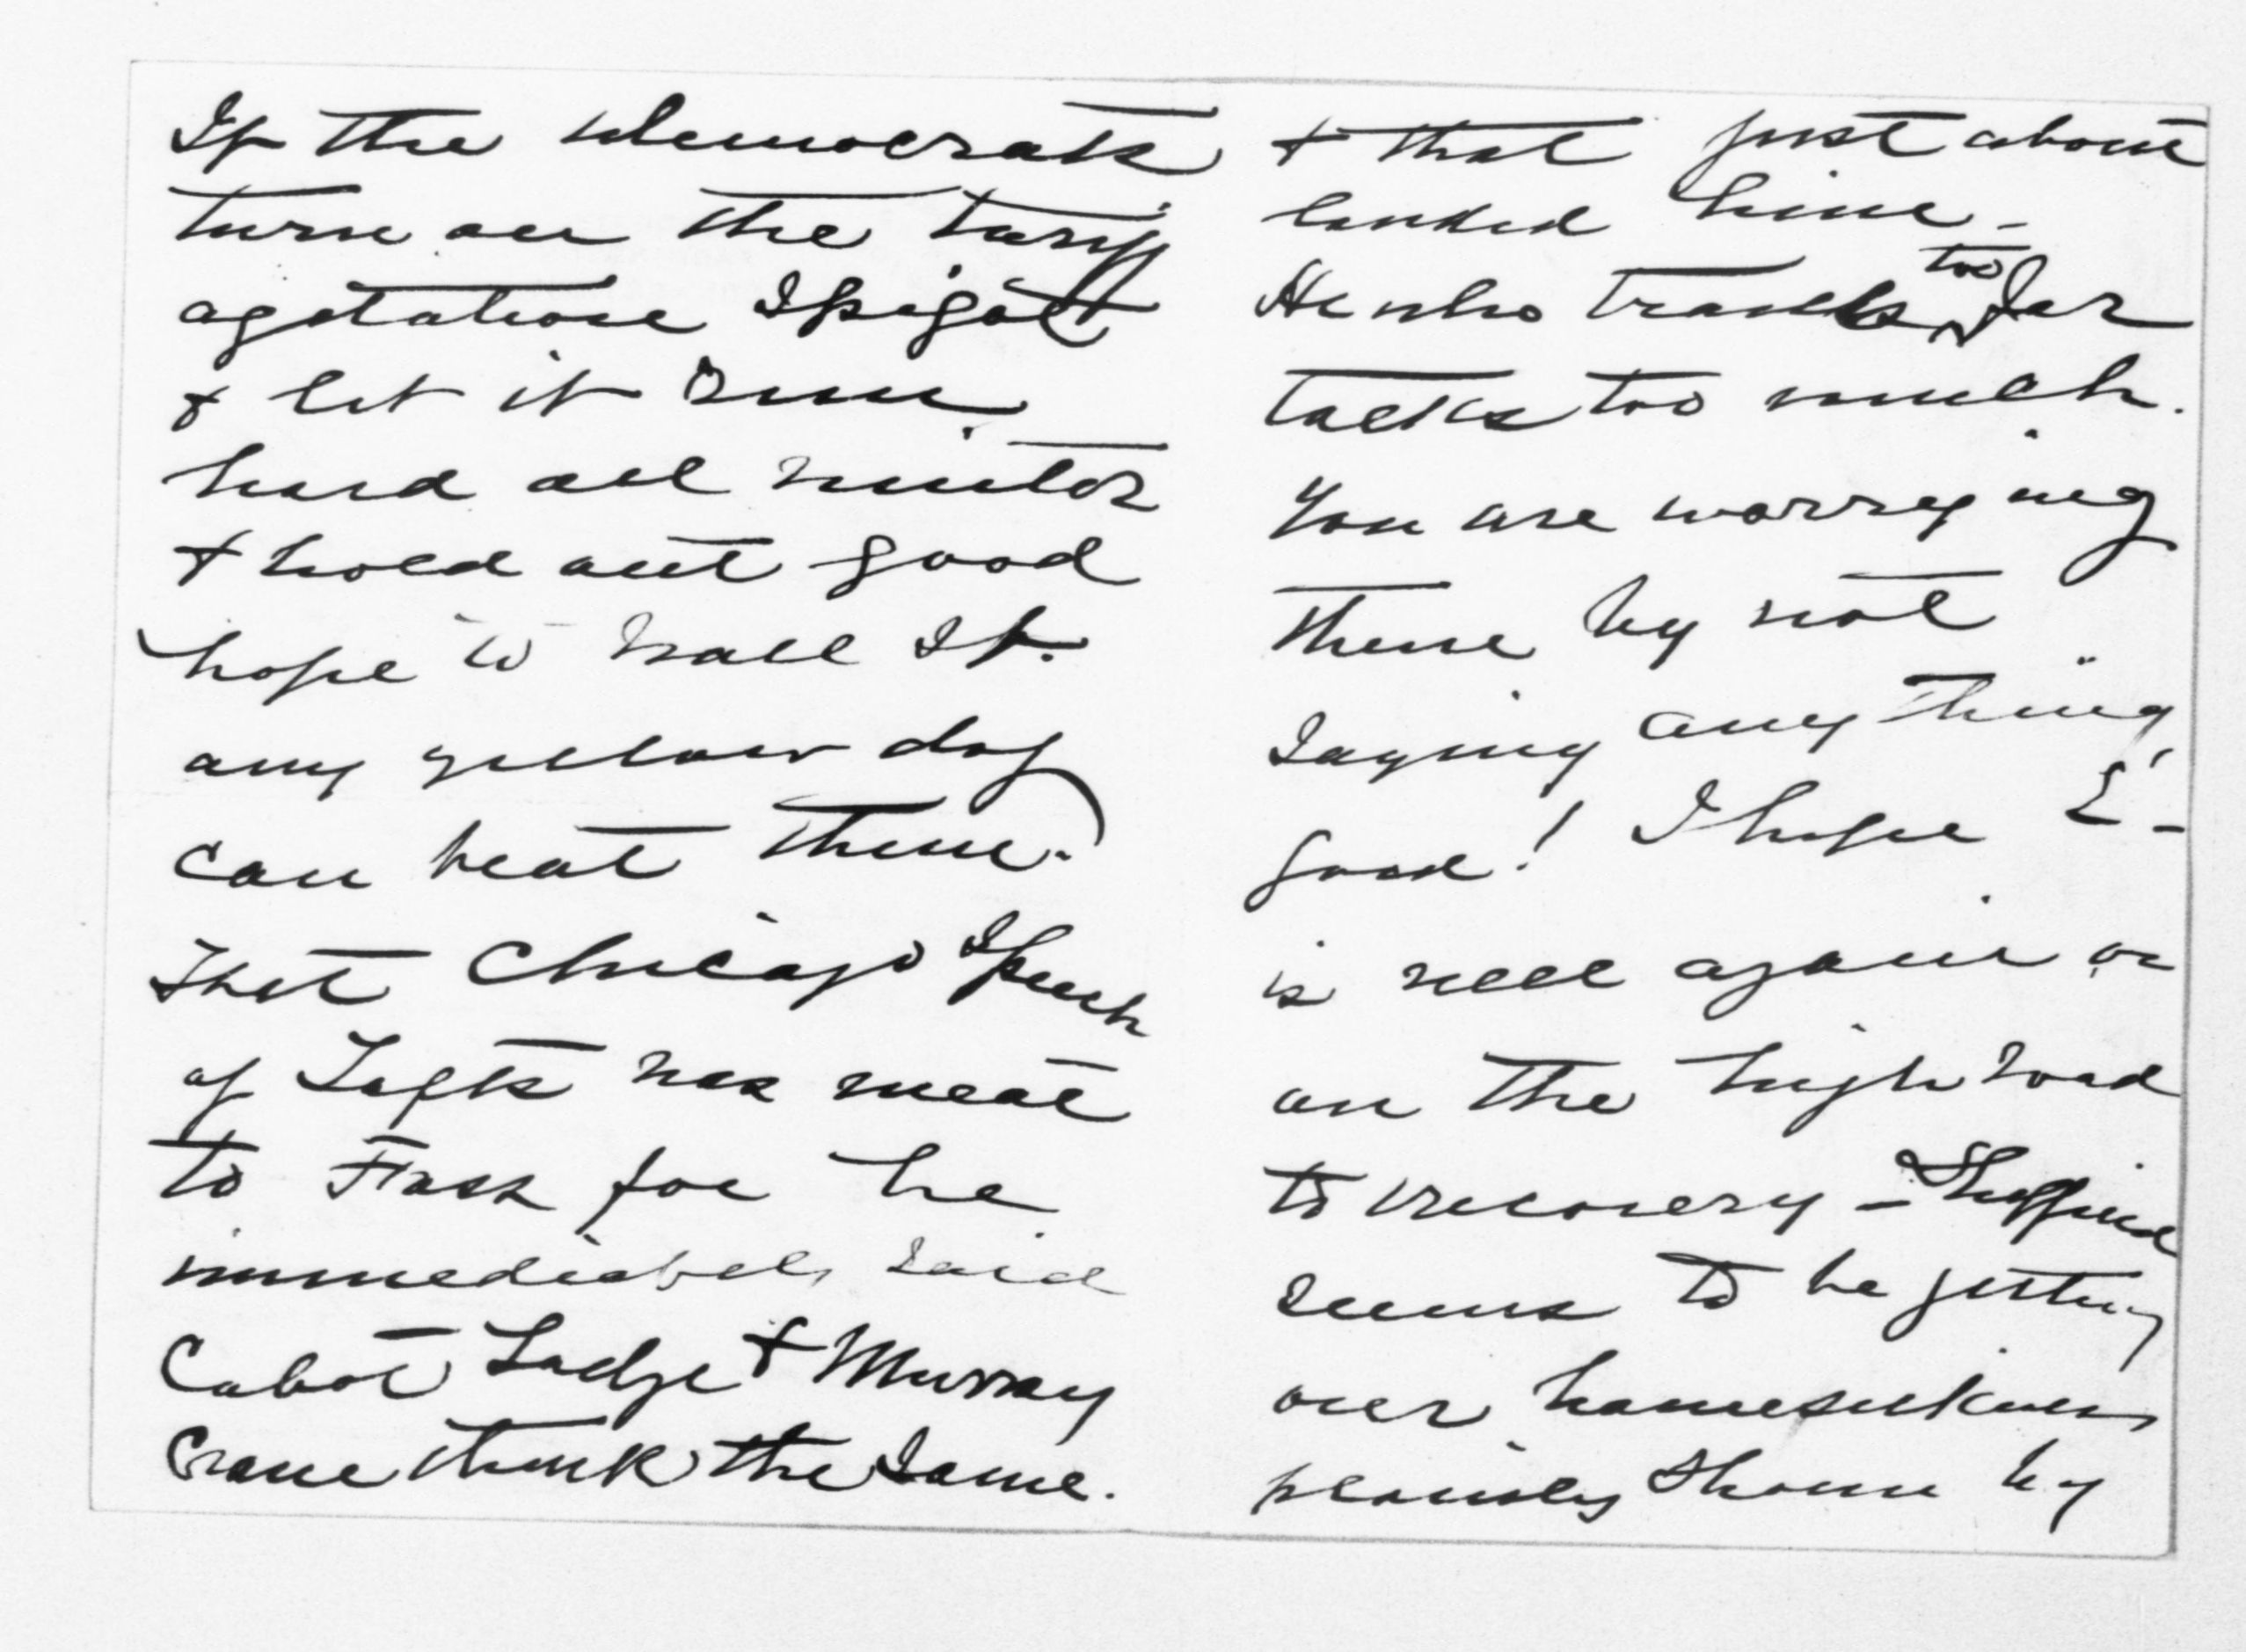 If the democrats
turn on the tariff
agitation spigot
& let it run
hard all winter
& hold out good
hope to Wall St.
any yellow dog
can beat them.
That Chicago speech
of Taft's was meat
to Foss for he
immediately said
Cabot Lodge & Murray
Crane think the same.
& that just about
landed him -
He who travels too far
talks too much.
You are worrying
them by not
saying anything,
good! I hope E-
is well again or
on the high road
to recovery - Sheffield
seems to be getting
over homesickness
previously shown by